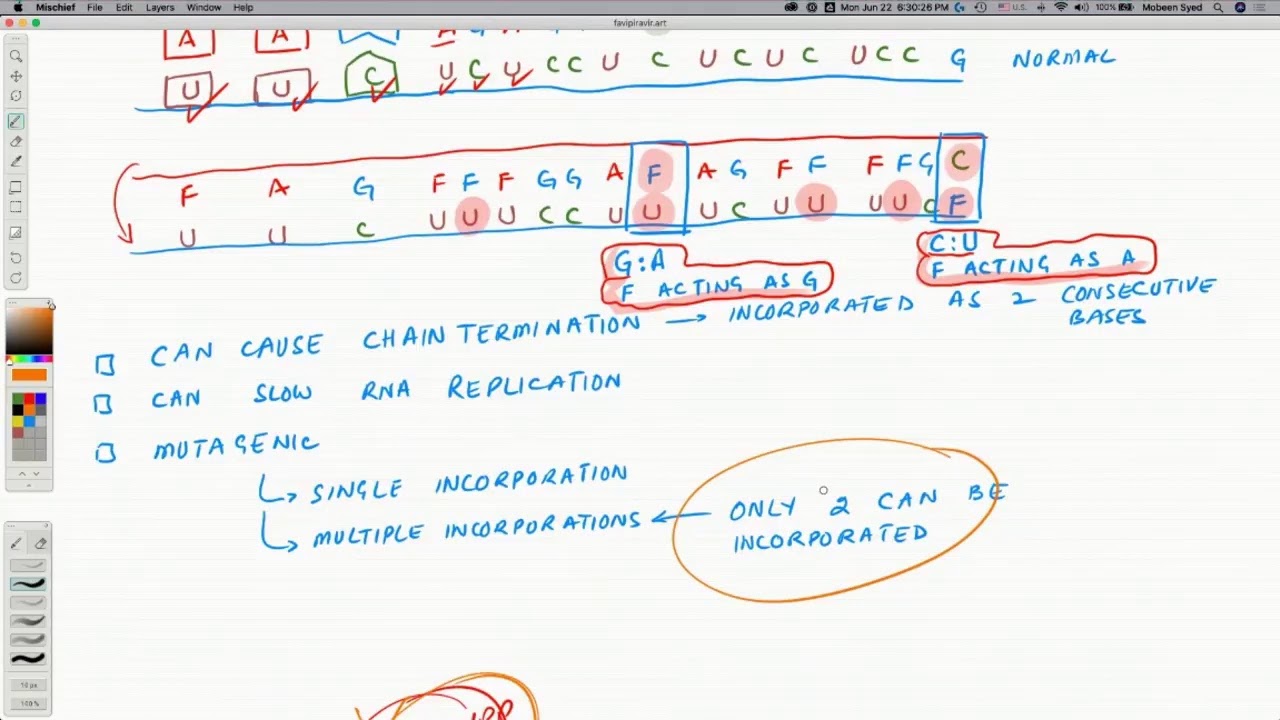 Mischief File Edit Layers Window Help 100% Mon Jun 22 6:30:26 PM U.S. 100% Mobeen Syed
favipiravir.art
A A A
U U C U C U C C U C U C U C U C C G NORMAL
F A G F F F G G A F A G F F F F G C
U U C U U U C C U U U C U U U U C F
G:A C:U
F ACTING AS G F ACTING AS A
CAN CAUSE CHAIN TERMINATION → INCORPORATED AS 2 CONSECUTIVE BASES
CAN SLOW RNA REPLICATION
MUTAGENIC
SINGLE INCORPORATION
MULTIPLE INCORPORATIONS ← ONLY 2 CAN BE INCORPORATED
10 px
100%